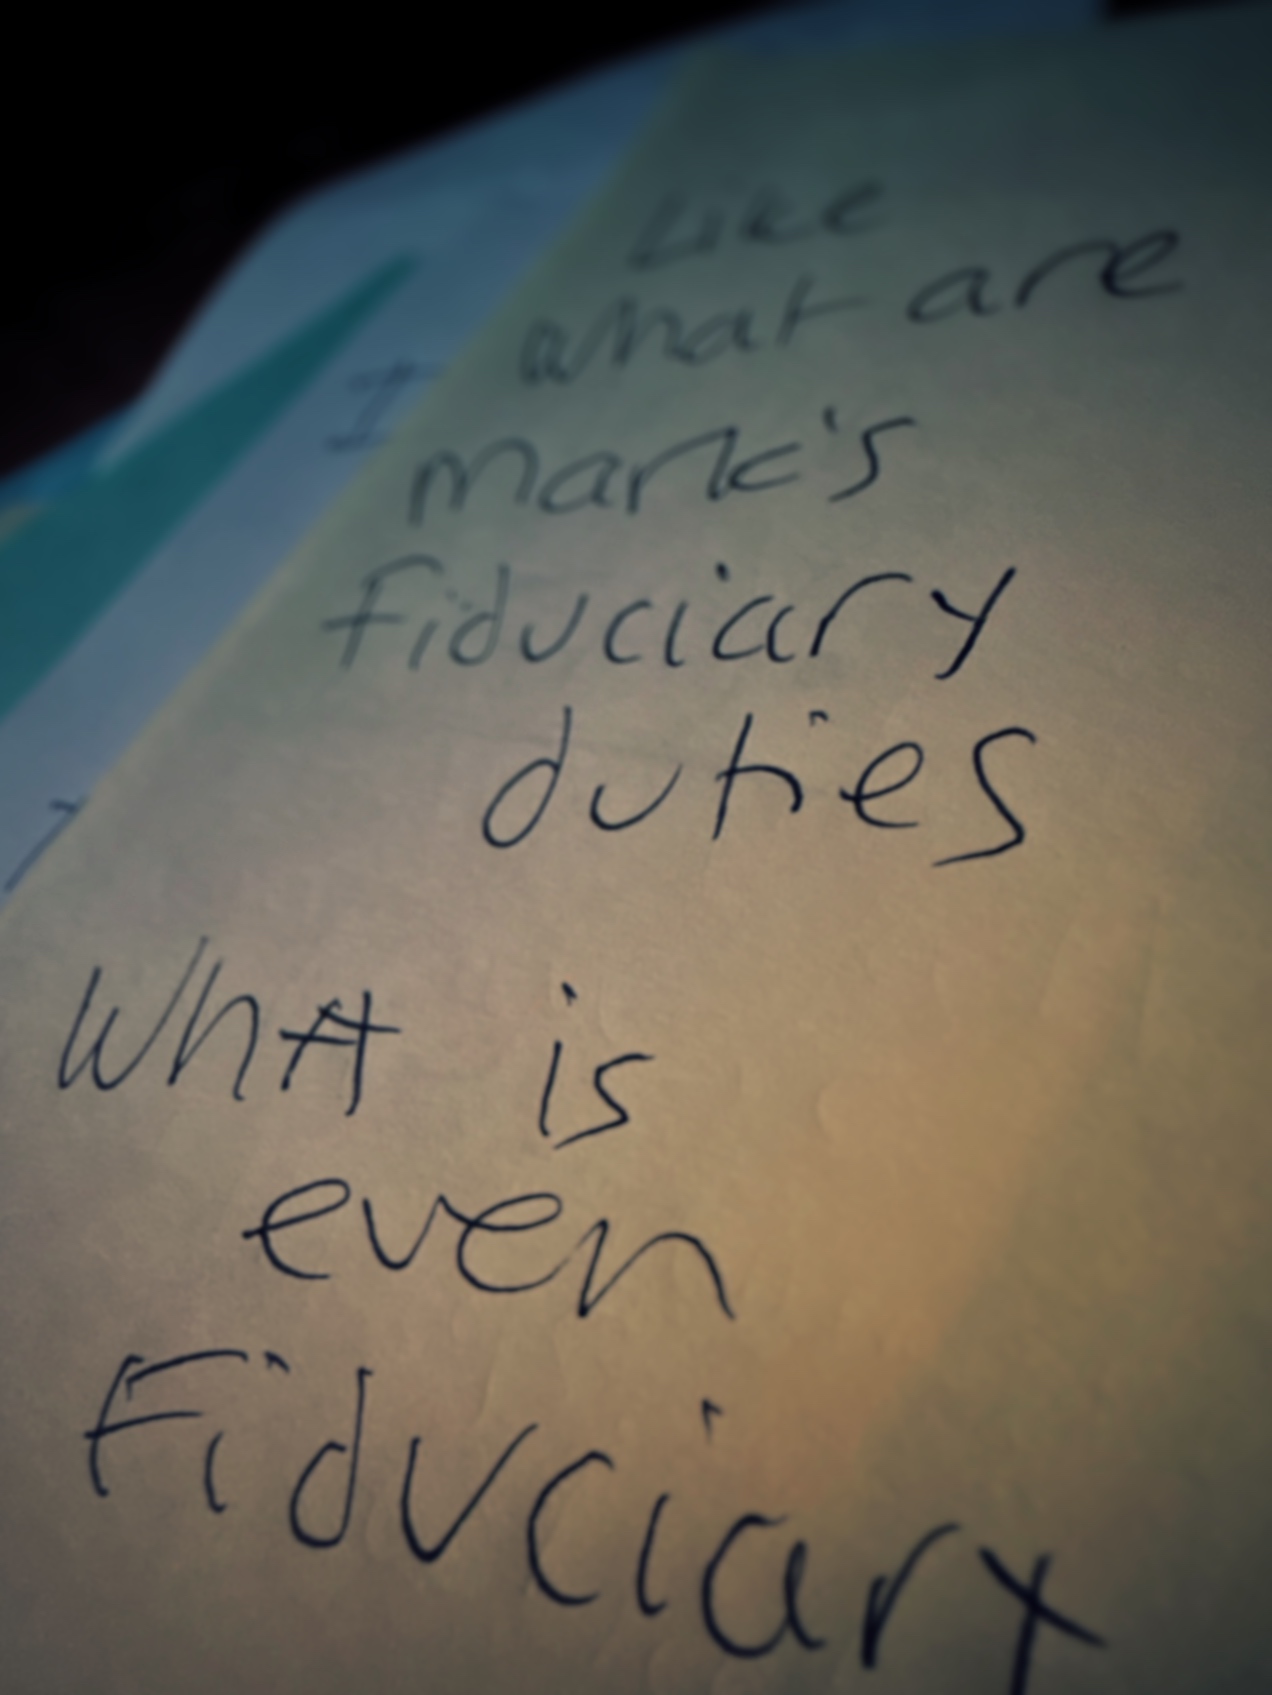 Like
what are
Mark's
fiduciary
duties
What is
even
Fiduciary
I